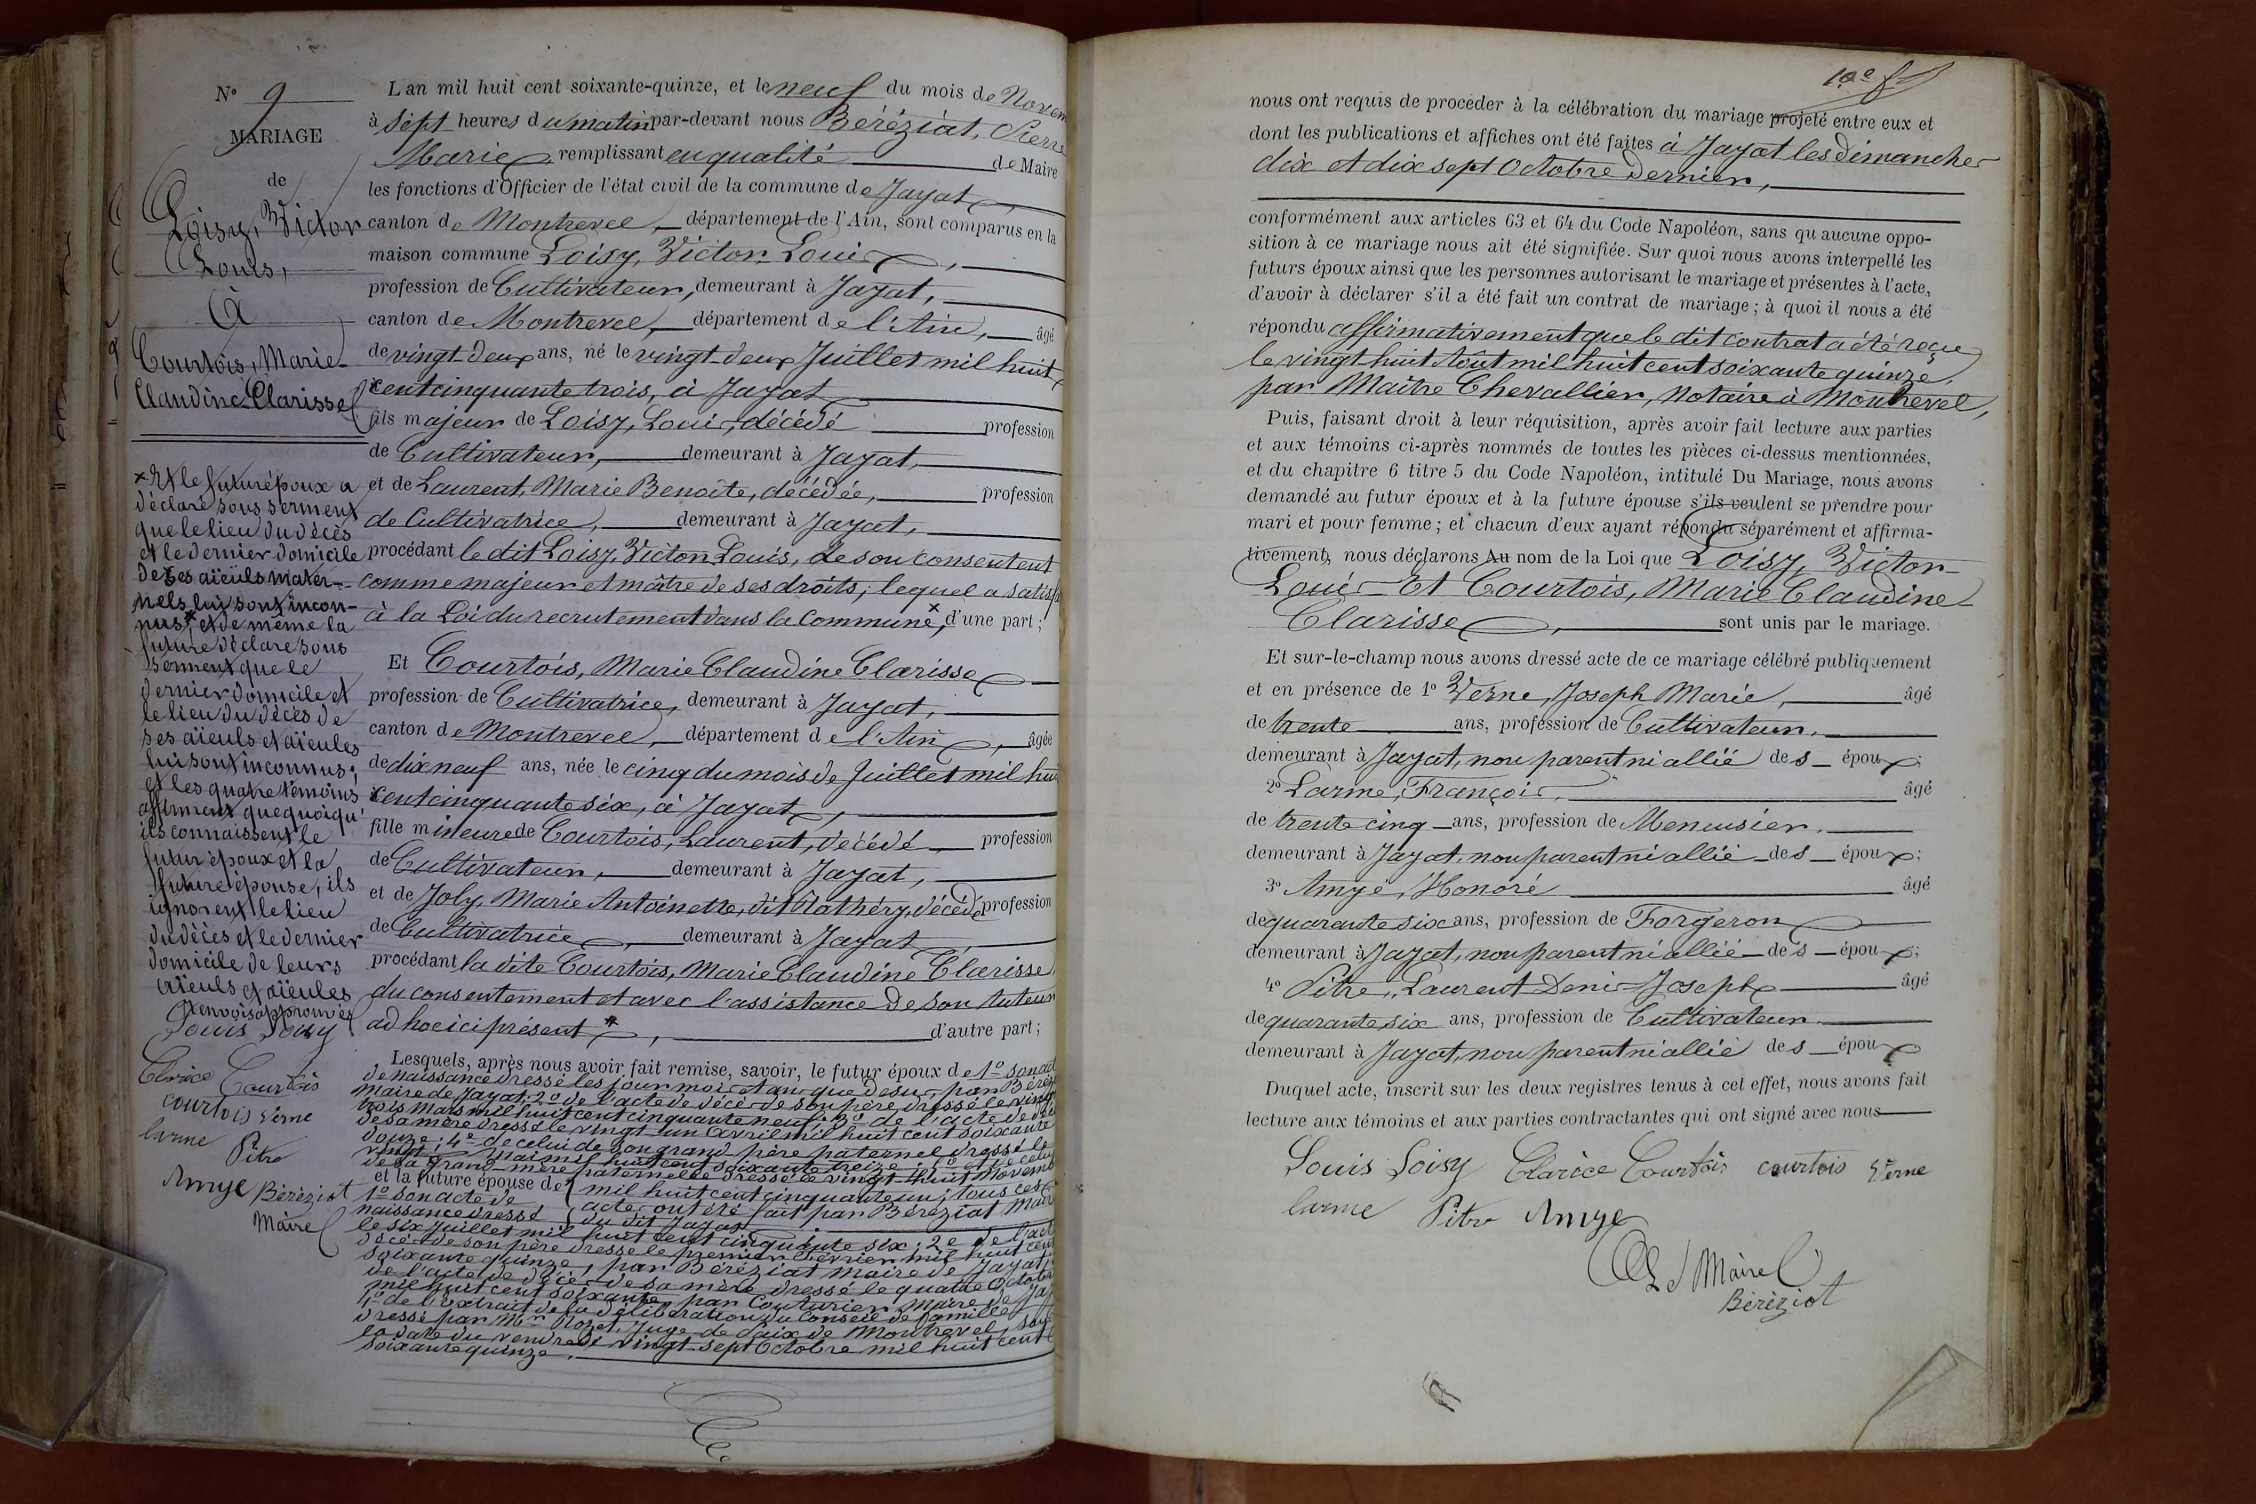 N° 9
MARIAGE
de
Loisy, Victor
Louis,
à
Courtois, Marie
Claudine Clarisse
* Et le futur époux a
déclaré sous serment
que le lieu du décès
et le dernier domicile
de ses aïeuls mater-
nels lui sont incon-
nus * et de même la
future déclare sous
serment que le
dernier domicile et
le lieu du décès de
ses aïeuls et aïeules
lui sont inconnus;
et les quatre témoins
affirment que quoiqu'
ils connaissent le
futur époux et la
future épouse, ils
ignorent le lieu
du décès et le dernier
domicile de leurs
aïeuls et aïeules
Renvois approuvés
Louis Loisy
Clarice Courtois
courtois Verne
larme
Pitre
Amye Béréziat
Maire
L'an mil huit cent soixante-quinze, et le neuf du mois de Novem
à sept heures du matin par-devant nous Béréziat, Pierre
Marie remplissant en qualité de Maire
les fonctions d'Officier de l'état civil de la commune de Jayat,
canton de Montrevel, département de l'Ain, sont comparus en la
maison commune Loisy, Victor Louis,
profession de Cultivateur, demeurant à Jayat,
canton de Montrevel, département de l'Ain, âgé
de vingt deux ans, né le vingt deux Juillet mil huit
cent cinquante trois, à Jayat
fils majeur de Loisy, Louis, décédé profession
de Cultivateur, demeurant à Jayat,
et de Laurent, Marie Benoîte, décédée, profession
de Cultivatrice, demeurant à Jayat,
procédant le dit Loisy, Victor Louis, de son consentent
comme majeur et maître de ses droits; lequel a satisf
à la Loi du recrutement dans la Commune *, d'une part;
Et Courtois, Marie Claudine Clarisse
profession de Cultivatrice, demeurant à Jayat,
canton de Montrevel, département de l'Ain, âgée
de dix neuf ans, née le cinq du mois de Juillet mil hui
cent cinquante six, à Jayat,
fille mineure de Courtois, Laurent, décédé profession
de Cultivateur, demeurant à Jayat,
et de Joly, Marie Antoinette, dit Nathéry, décédé profession
de Cultivatrice, demeurant à Jayat
procédant la dite Courtois, Marie Claudine Clarisse
du consentement et avec l'assistance de son tuteur
ad hoc ici présent *, d'autre part;
Lesquels, après nous avoir fait remise, savoir, le futur époux de 1° son act
de naissance dressé les jour mois et an que desus, par Béré
maire de Jayat; 2° de l'acte de décès de son père dressé le vingt
trois mars mil huit cent cinquante neuf; 3° de l'acte de dé
de sa mère dressé le vingt-un avril mil huit cent soixante
douze; 4° de celui de son grand père paternel dressé le
vingt mai mil huit cent soixante treize; 5° de celui
de sa grand-mère paternelle dressé le vingt huit Novemb
et la future épouse de mil huit cent cinquante un; tous ces
1° son acte de actes ont été fait par Béréziat Mair
naissance dressé du dit Jayat
le six Juillet mil huit cent cinquante six; 2° de l'act
décès de son père dressé le premier Février mil huit cent
soixante quinze, par Béréziat Maire de Jayat;
de l'acte de décès de sa mère dressé le quatre Octobr
mil huit cent soixante par Couturier Maire de Ja
4° de l'extrait de la délibération du Conseil de famille
dressé par Mr Rozet, Juge de Paix de Montrevel, sous
la date du vendredi vingt-sept Octobre mil huit cent
soixante quinze.
10e f
nous ont requis de procéder à la célébration du mariage projeté entre eux et
dont les publications et affiches ont été faites à Jayat les dimanches
dix et dix sept Octobre dernier,
conformément aux articles 63 et 64 du Code Napoléon, sans qu'aucune oppo-
sition à ce mariage nous ait été signifiée. Sur quoi nous avons interpellé les
futurs époux ainsi que les personnes autorisant le mariage et présentes à l'acte,
d'avoir à déclarer s'il a été fait un contrat de mariage; à quoi il nous a été
répondu affirmativement que le dit contrat a été reçu
le vingt huit Août mil huit cent soixante quinze,
par Maître Chevallier, Notaire à Montrevel,
Puis, faisant droit à leur réquisition, après avoir fait lecture aux parties
et aux témoins ci-après nommés de toutes les pièces ci-dessus mentionnées,
et du chapitre 6 titre 5 du Code Napoléon, intitulé Du Mariage, nous avons
demandé au futur époux et à la future épouse s'ils veulent se prendre pour
mari et pour femme; et chacun d'eux ayant répondu séparément et affirma-
tivement, nous déclarons Au nom de la Loi que Loisy, Victor
Louis Et Courtois, Marie Claudine
Clarisse, sont unis par le mariage.
Et sur-le-champ nous avons dressé acte de ce mariage célébré publiquement
et en présence de 1° Verne, Joseph Marie, âgé
de trente ans, profession de Cultivateur,
demeurant à Jayat, non parent ni allié des époux;
2° Larme, François, âgé
de trente cinq ans, profession de Menuisier,
demeurant à Jayat, non parent ni allié des époux;
3° Amye, Honoré âgé
de quarante six ans, profession de Forgeron
demeurant à Jayat, non parent ni allié des époux;
4° Pitre, Laurent Denis Joseph âgé
de quarante six ans, profession de Cultivateur
demeurant à Jayat, non parent ni allié des époux
Duquel acte, inscrit sur les deux registres tenus à cet effet, nous avons fait
lecture aux témoins et aux parties contractantes qui ont signé avec nous
Louis Loisy Clarice Courtois courtois Verne
larme Pitre Amye
Le Maire
Béréziat